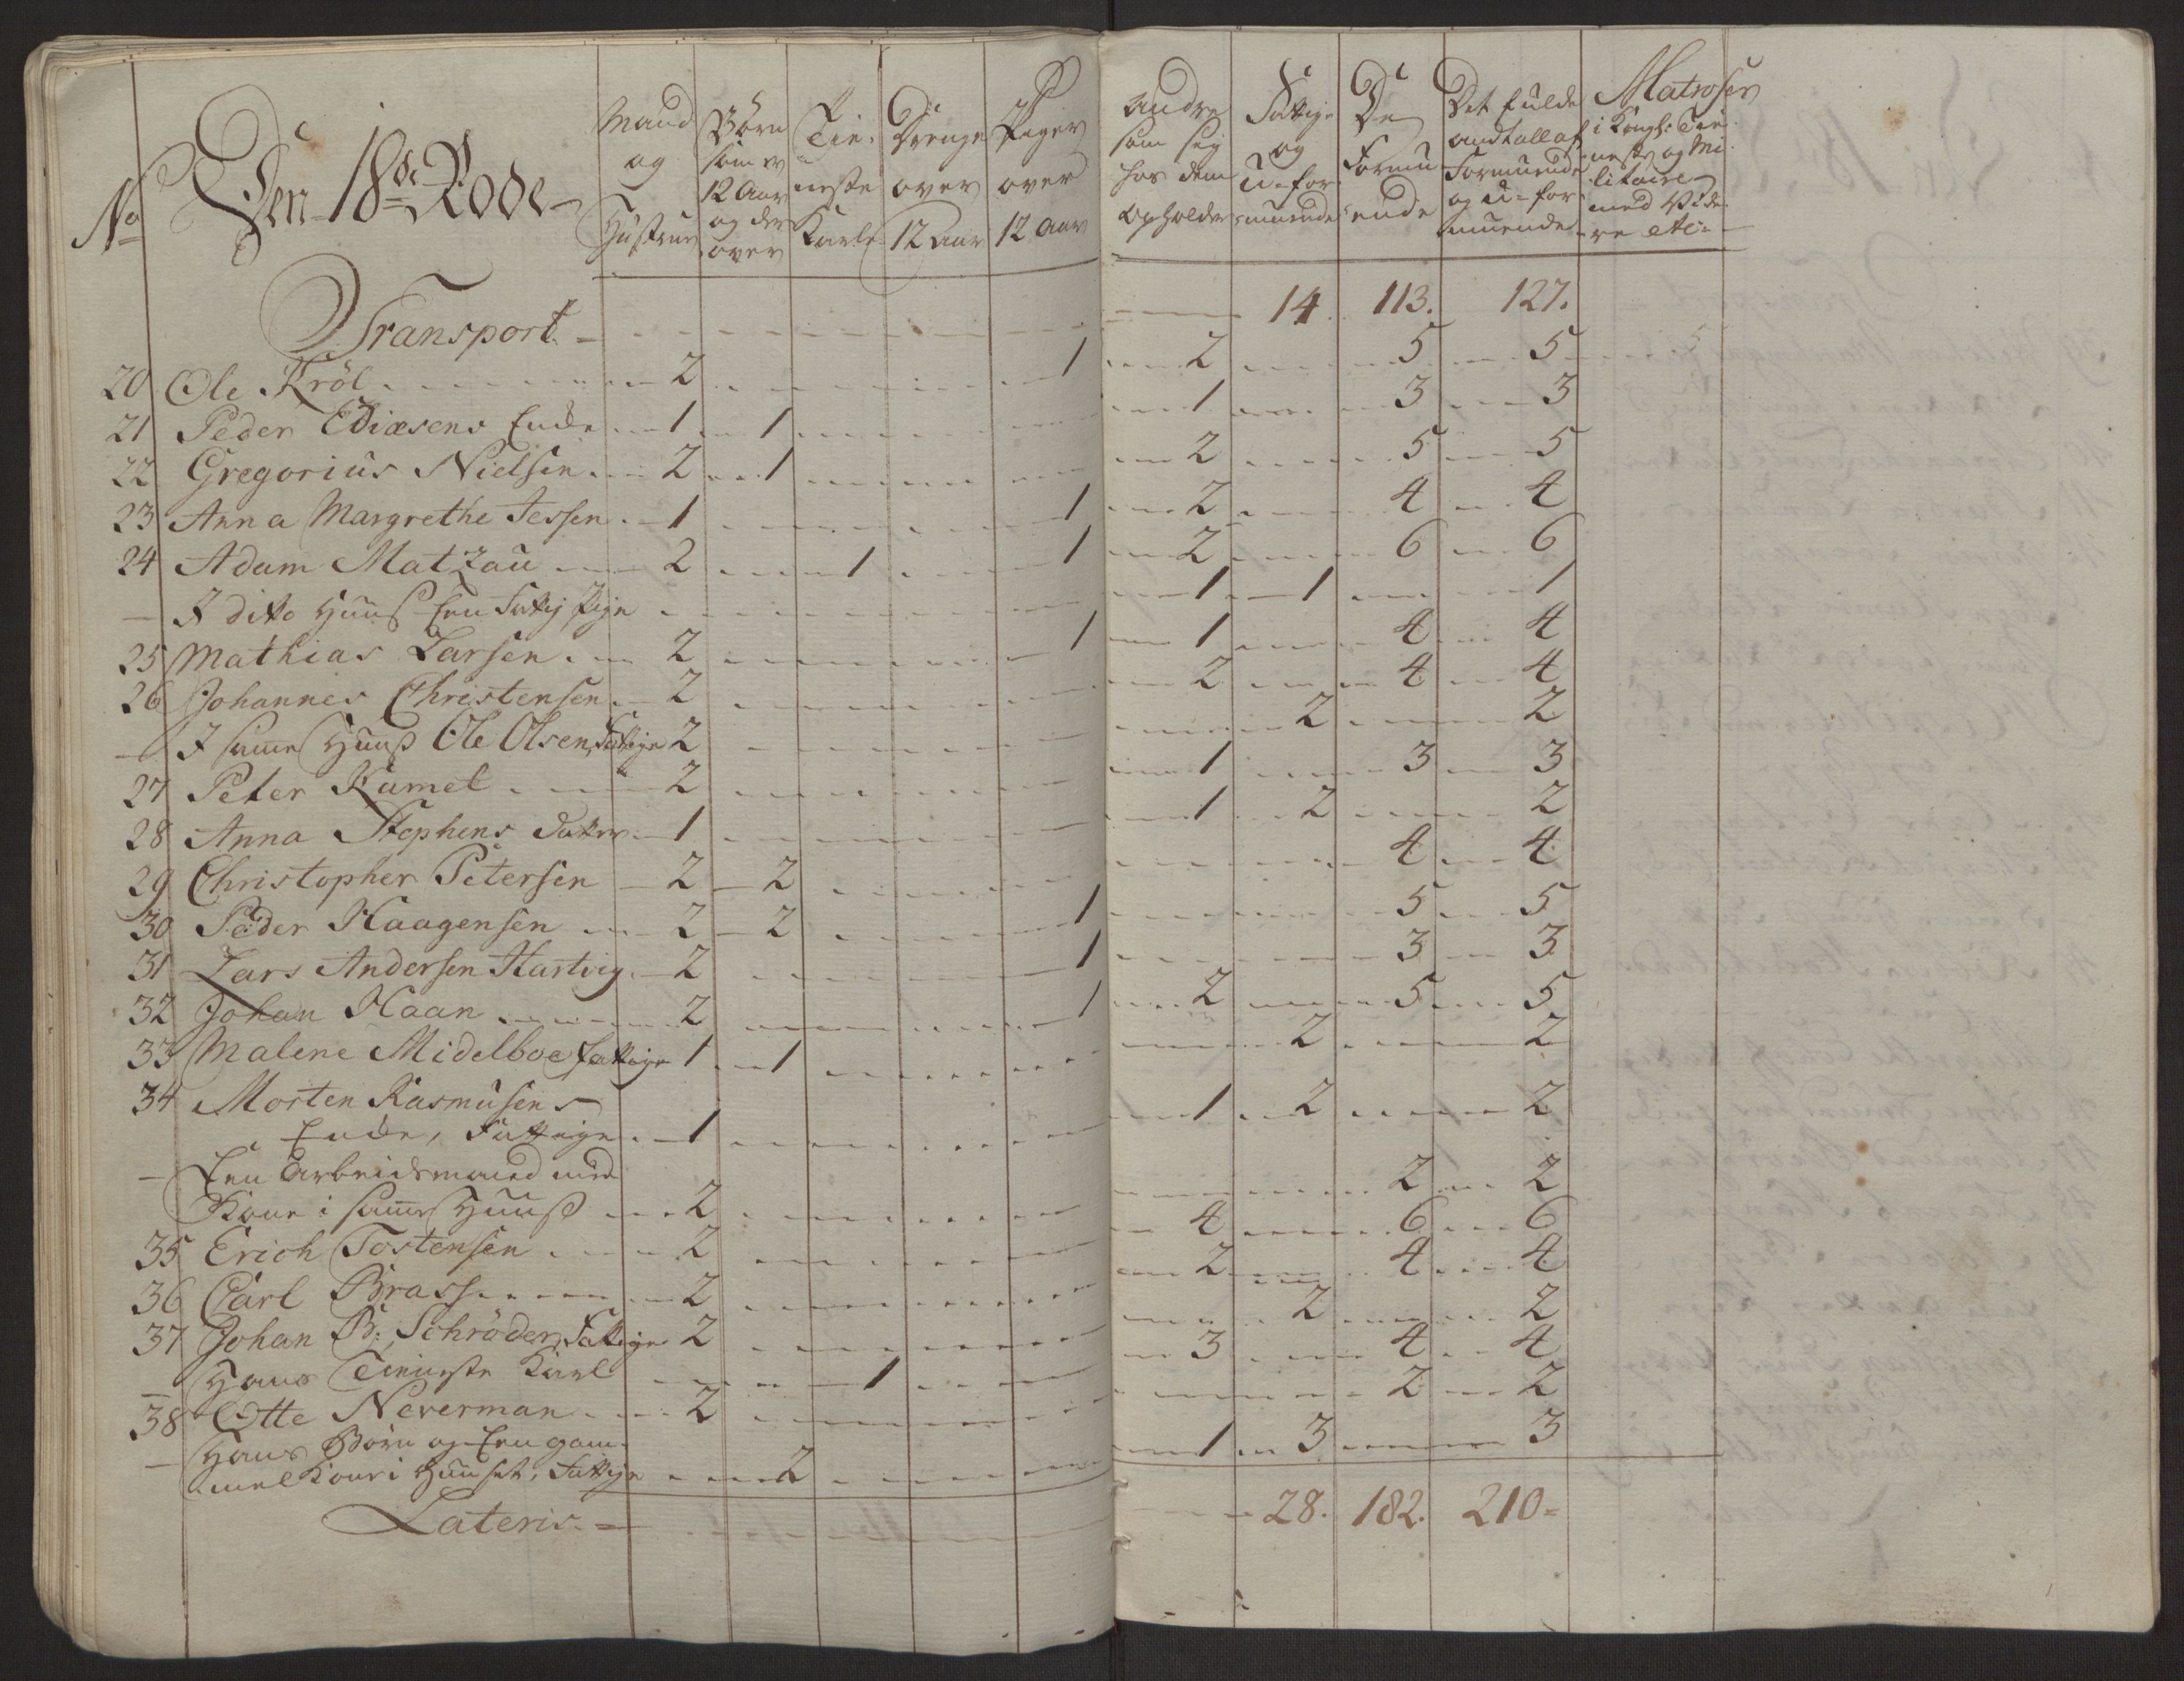 No Den 18de Rode
Mand og Hustrue | Börn som er 12 Aar og der over | Tieneste Karle | Drenge over 12 Aar | Piger over 12 Aar | Andre som sig hos dem opholder | Fattige og U-formuende | De Formuende | Det fulde andtall af Formuende og U-formuende | Matroser i Kongl: Tieneste og Militaire med Videre etc:
Transport 14. 113. 127.
20 Ole Kröl 2 1 2 5 5
21 Peder Ediæsens Enke 1 1 1 3 3
22 Gregorius Nielsen 2 1 2 5 5
23 Anna Margrethe Jessen 1 1 2 4 4
24 Adam Matzau 2 1 1 2 6 6
— I dito Huus Een Fattig Pige 1 1 1
25 Mathias Larsen 2 1 1 4 4
26 Johannes Christensen 2 2 4 4
— I samme Huus Ole Olsen, Fattige 2 2 2
27 Peter Kamel 2 1 3 3
28 Anna Stephens 1 1 2 2
29 Christopher Petersen 2 2 4 4
30 Peder Haagensen 2 2 1 5 5
31 Lars Andersen Hartvig 2 1 3 3
32 Johan Haan 2 1 2 5 5
33 Malene Midelboe fattige 1 1 2 2
34 Morten Rasmusens
Enke, Fattige 1 1 2 2
— Een Arbeidsmand med
Kone i samme Huus 2 2 2
35 Erich Tostensen 2 4 6 6
36 Carl Brass 2 2 4 4
37 Johan B: Schröder, Fattige 2 2 2
— Hans Tieneste Karl 1 3 4 4
38 Otte Neverman 2 2 2
— Hans Börn og Een gam-
mel Kone i Huuset, Fattige 2 1 3 3
Lateris 28. 182. 210